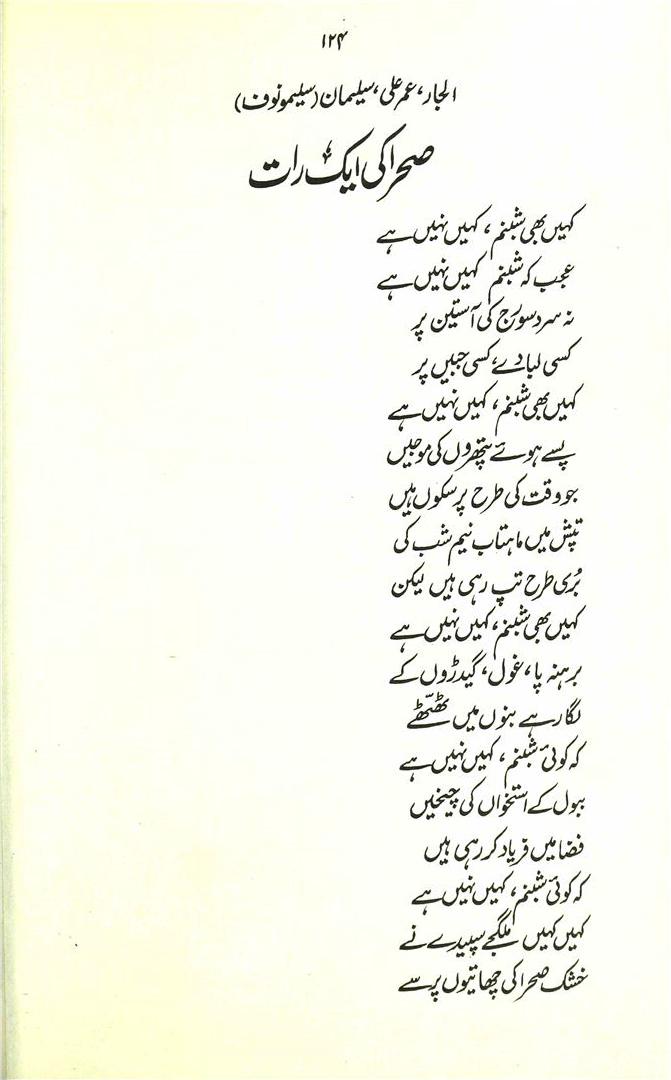 ۱۲۴
الجار، عمر علی، سیلیمان (سلیمونوف)
صحرا کی ایک رات
کہیں بھی شبنم، کہیں نہیں ہے
عجب کہ شبنم کہیں نہیں ہے
نہ سرد سورج کی آستین پر
کسی لبادے، کسی جبیں پر
کہیں بھی شبنم، کہیں نہیں ہے
پسے ہوئے پتھروں کی موجیں
جو وقت کی طرح پرسکوں ہیں
تپش میں ماہتاب نیم شب کی
بُری طرح تپ رہی ہیں لیکن
کہیں بھی شبنم، کہیں نہیں ہے
برہنہ پا، غول، گیدڑوں کے
لگا رہے بنوں میں ٹھٹھّے
کہ کوئی شبنم، کہیں نہیں ہے
ببول کے استخواں کی چیخیں
فضا میں فریاد کر رہی ہیں
کہ کوئی شبنم، کہیں نہیں ہے
کہیں کہیں ملگجے سپیدے نے
خشک صحرا کی چھاتیوں پر سے